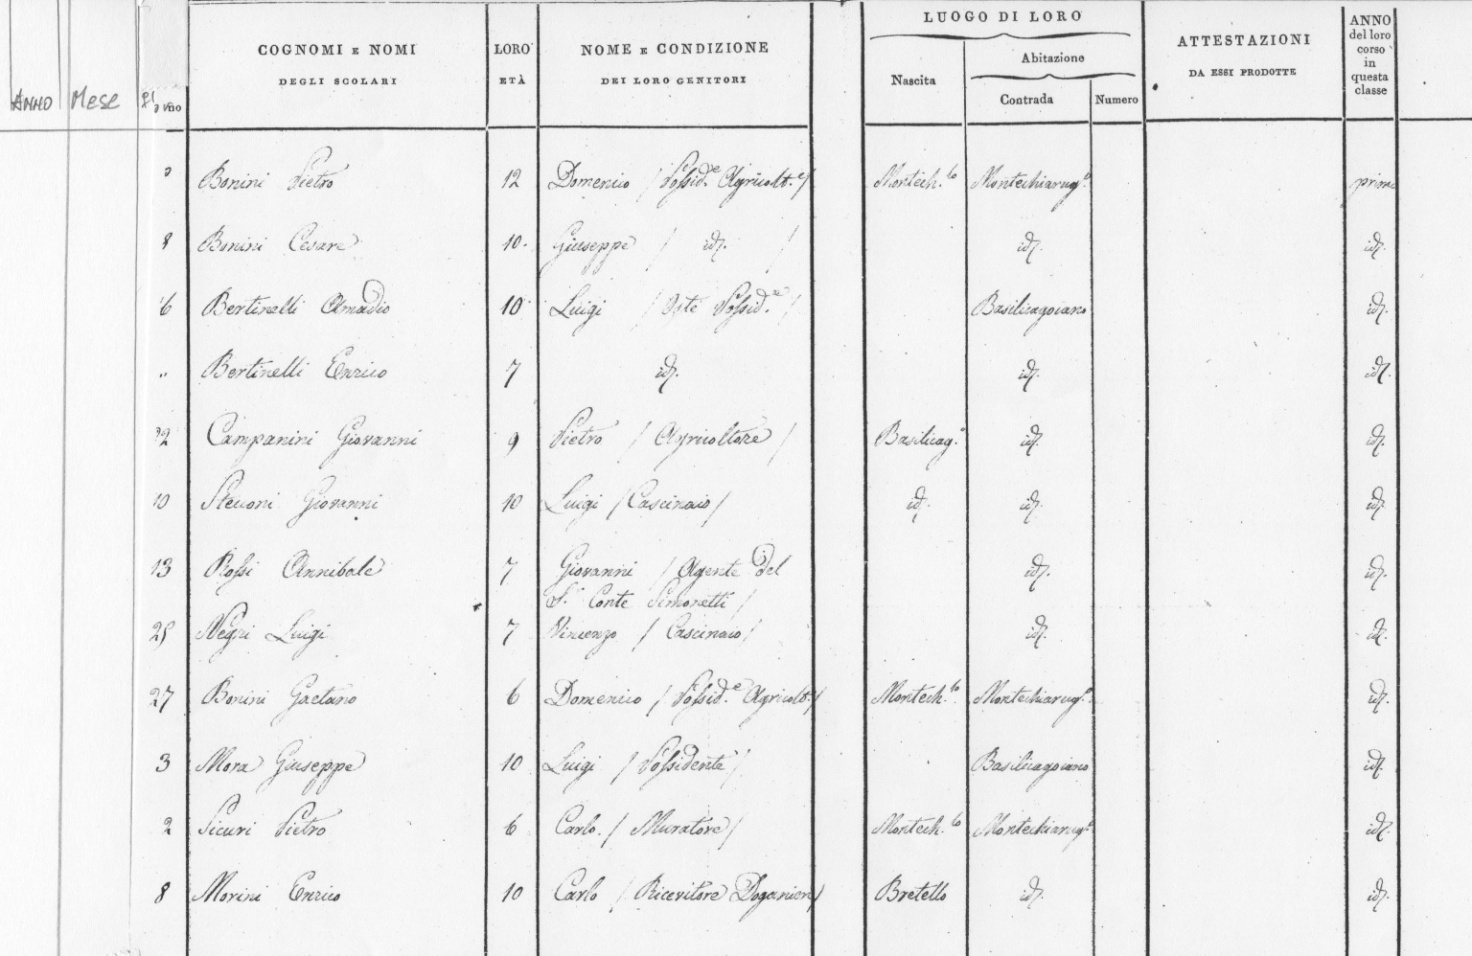 LUOGO DI LORO
COGNOMI E NOMI LORO NOME E CONDIZIONE ATTESTAZIONI ANNO
DEGLI SCOLARI ETÀ DEI LORO GENITORI Nascita Abitazione DA ESSI PRODOTTE del loro
corso
in
questa
classe
ANNO Mese Contrada Numero
Bonini Pietro 12 Domenico / Possid.e Agricolt.e / Montech.lo Montechiarug.o prima
8 Bonini Cesare 10. Giuseppe / id. / id. id.
6 Bertinelli Amadio 10 Luigi / Oste Possid.e / Basilicagoiano id.
„ Bertinelli Enrico 7 id. id. id.
22 Campanini Giovanni 9 Pietro / Agricoltore / Basilicag.o id. id.
10 Stecconi Giovanni 10 Luigi / Cascinaio / id. id. id.
13 Rossi Annibale 7 Giovanni / Agente del id. id.
S.r Conte Simonetti /
25 Negri Luigi 7 Vincenzo / Cascinaio / id. id.
27 Bonini Gaetano 6 Domenico / Possid.e Agricolt. / Montech.lo Montechiarug.o id.
3 Mora Giuseppe 10 Luigi / Possidente / Basilicagoiano id.
2 Sicuri Pietro 6 Carlo. / Muratore / Montech.lo Montechiarug.o id.
8 Morini Enrico 10 Carlo / Ricevitore Doganiere / Bretello id. id.